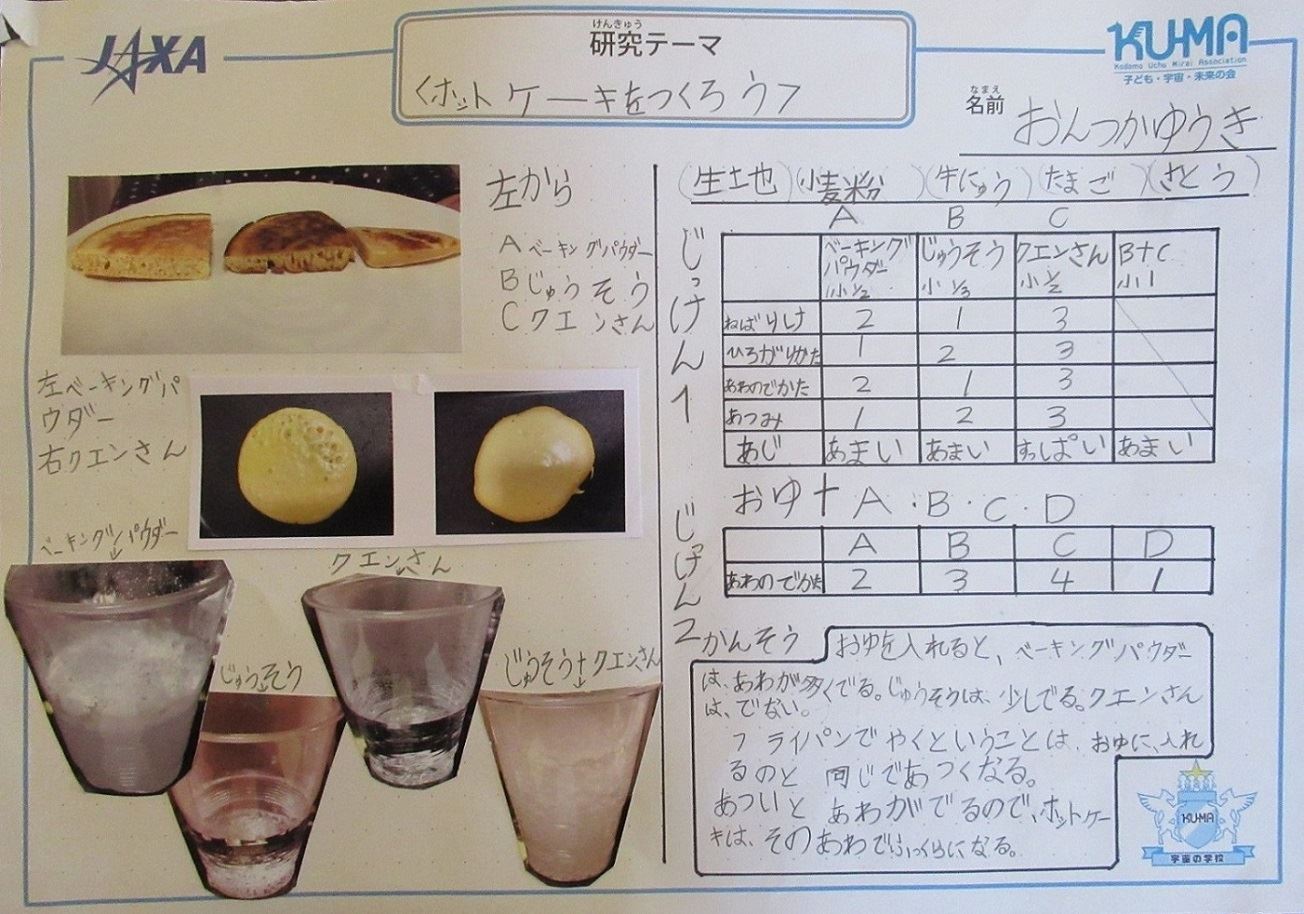 JAXA
けんきゅう
研究テーマ
〈ホットケーキをつくろう〉
KU-MA
Kodomo Uchu Mirai Association
子ども・宇宙・未来の会
なまえ
名前
おんつかゆうき
左から
A ベーキングパウダー
B じゅうそう
C クエンさん
左ベーキングパ
ウダー
右クエンさん
ベーキングパウダー
クエンさん
じゅうそう
じゅうそう+クエンさん
(生土也)(小麦粉)(牛にゅう)(たまご)(さとう)
A B C
じっけん1
ベーキングパウダー小1/2 じゅうそう小1/3 クエンさん小1/2 B+C小1
ねばりけ 2 1 3
ひろがりかた 1 2 3
あわのでかた 2 1 3
あつみ 1 2 3
あじ あまい あまい すっぱい あまい
じっけん2
おゆ+A・B・C・D
A B C D
あわのでかた 2 3 4 1
かんそう
おゆを入れると、ベーキングパウダー
は、あわが多くでる。じゅうそうは、少しでる。クエンさん
は、でない。
フライパンでやくということは、おゆに、入れ
るのと同じであつくなる。
あついとあわがでるので、ホットケー
キは、そのあわでふっくらになる。
KU-MA
宇宙の学校